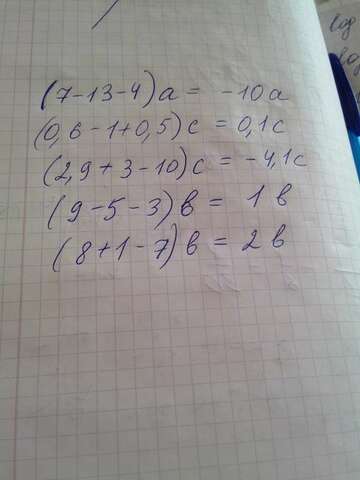 (7-13-4)a = -10a
(0,6-1+0,5)c = 0,1c
(2,9+3-10)c = -4,1c
(9-5-3)в = 1в
(8+1-7)в = 2в
log